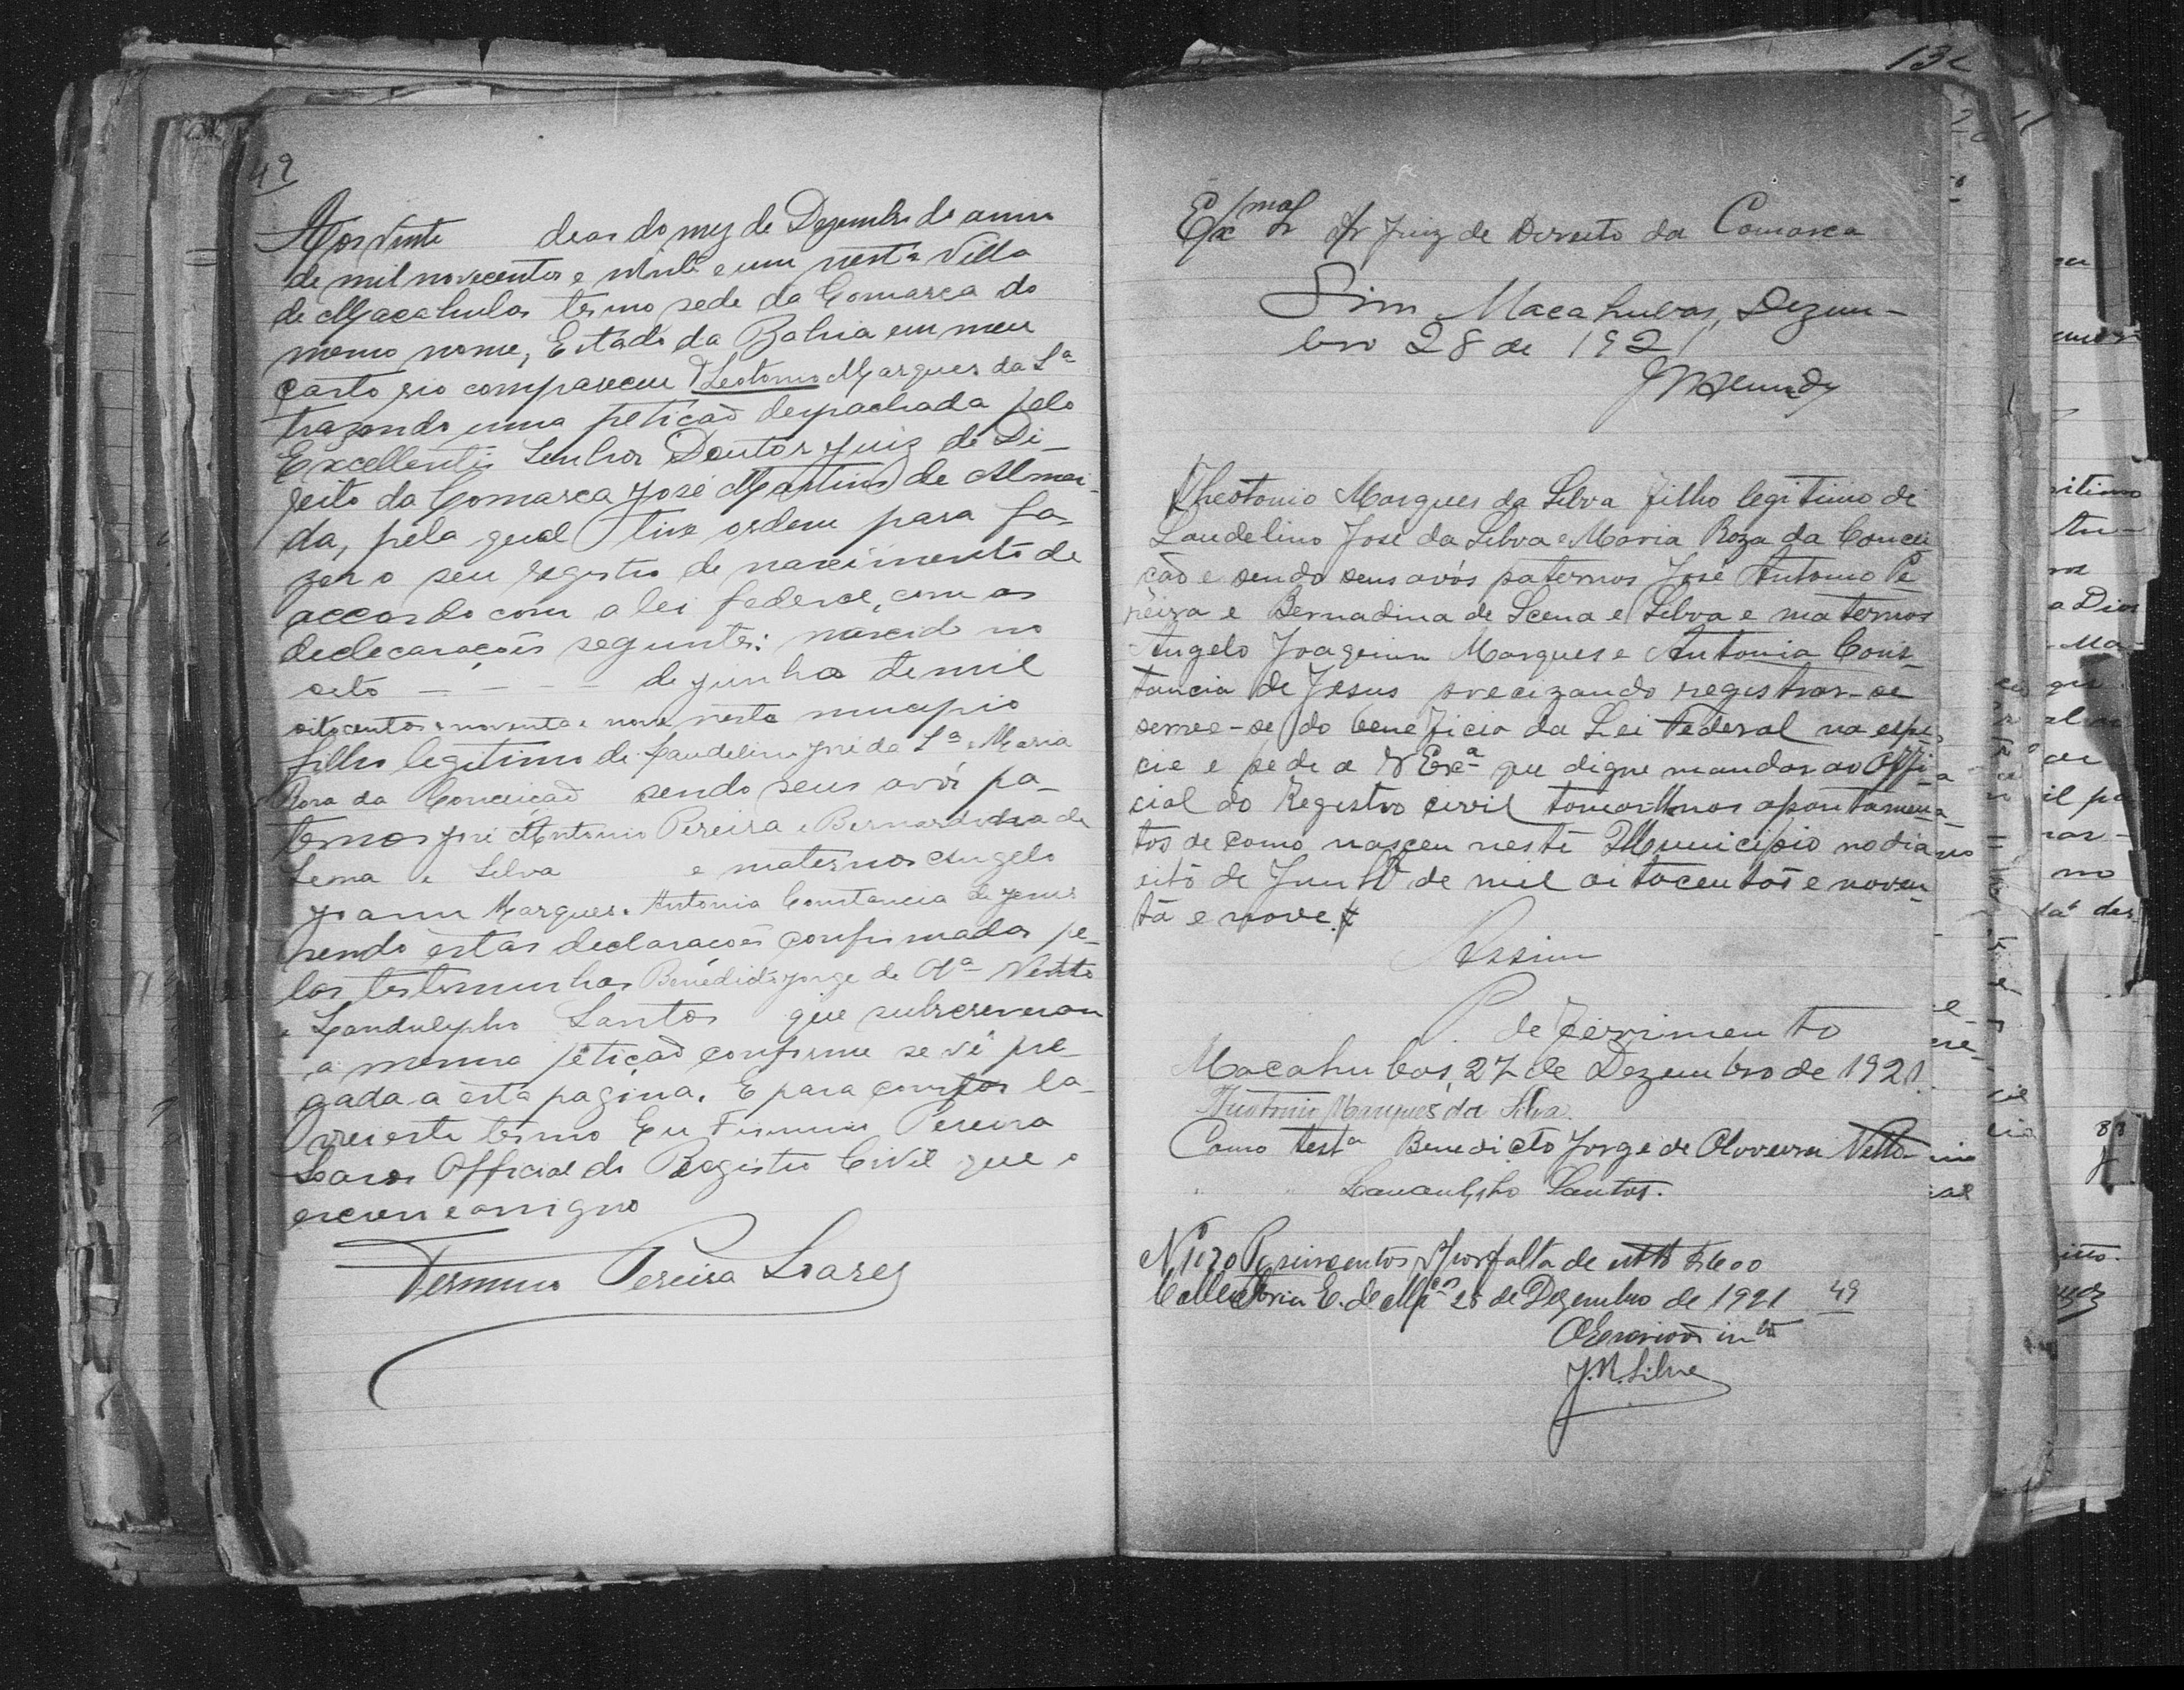 49
Aos vinte dias do mez de Dezembro do anno
de mil novecentos e vinte e um nesta Villa
de Macahubas termo sede da Comarca do
mesmo nome, Estado da Bahia em meu
cartorio compareceu Theotonio Marques da Sª
trazendo uma petição despachada pelo
Excellentis Senhor Doutor Juiz de Di-
reito da Comarca José Martins de Almei-
da, pela qual tive ordem para fa-
zer o seu registro de nascimento de
accordo com a lei federal, com as
declarações seguintes: nascido no
oito - - - - de junho de mil
oitocentos e noventa e nove neste municipio
filho legitimo de Laudelino José da Sª e Maria
Rosa da Conceicaõ sendo seus avós pa-
ternos José Antonio Pereira e Bernardina de
Sena e Silva e maternos Angelo
Joaqm Marques e Antonia Constancia de Jesus
sendo estas declaracões confirmadas pe-
las testemunhas Benedicto Jorge de Olª Netto
e Landulpho Santos que subscreveram
a mesma petição conforme se vê pre-
gada a esta pagina. E para constar la-
vrei este termo Eu Firmino Pereira
Soares Official do Registro Civil que o
escrevi e assigno
Firmino Pereira Soares
132
Exmo Sr Dr Juiz de Direito da Comarca
Sim Macahubas, Dezem-
bro 28 de 1921
JMAlmeida
Theotonio Marques da Silva filho legitimo de
Laudelino José da Silva e Maria Roza da Concei
ção e sendo seus avós paternos José Antonio Pe
reira e Bernadina de Scena e Silva e maternos
Angelo Joaquim Marques e Antonia Cons-
tancia de Jesus precizando registrar-se
serve-se do beneficio da Lei Federal na espe
cie e pede a V Exª que digne mandar ao Offi
cial do Registro civil tomar os apontamen-
tos de como nasceu neste Municipio no dia
oito de Junho de mil oitocentos e noven-
ta e nove.
Assim
P. deferimento
Macahubas, 27 de Dezembro de 1921.
Theotonio Marques da Silva.
Como testª Benedicto Jorge de Oliveira Netto
" " Landulpho Santos.
por falta de
Collectoria E. de 28 de Dezembro de 1921 49
O Escrivão
J.M.Silva